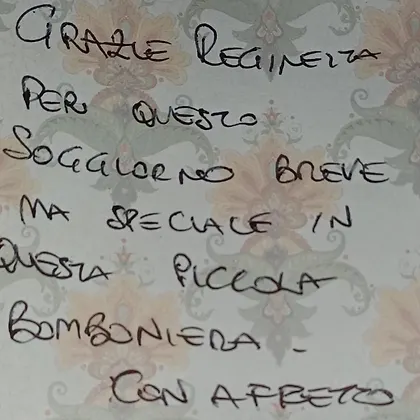 GRAZIE REGINETTA
PER QUESTO
SOGGIORNO BREVE
MA SPECIALE IN
QUESTA PICCOLA
BOMBONIERA -
CON AFFETO